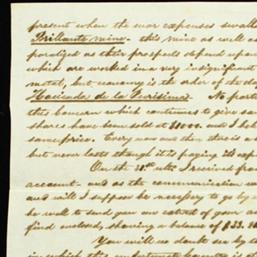 present when the war expenses swall
Brillante mine. this mine as well as
paralized as their prospects depend upon
which are worked in a very insignificant
metal, but economy is the order of the day
Hacienda de la Purisima. No parti
this concern which continues to give sa
shares have been sold at $1000. and I bel
same price. Every now and then there is a
but never lasts though it is paying its exp
On the 28th ulto. I received from
account. and as the communication w
and will I suppose be necessary to go by
be well to send you an extract of your a
find enclosed, showing a balance of $33.
You will no doubt see by the
in which this unfortunate country is